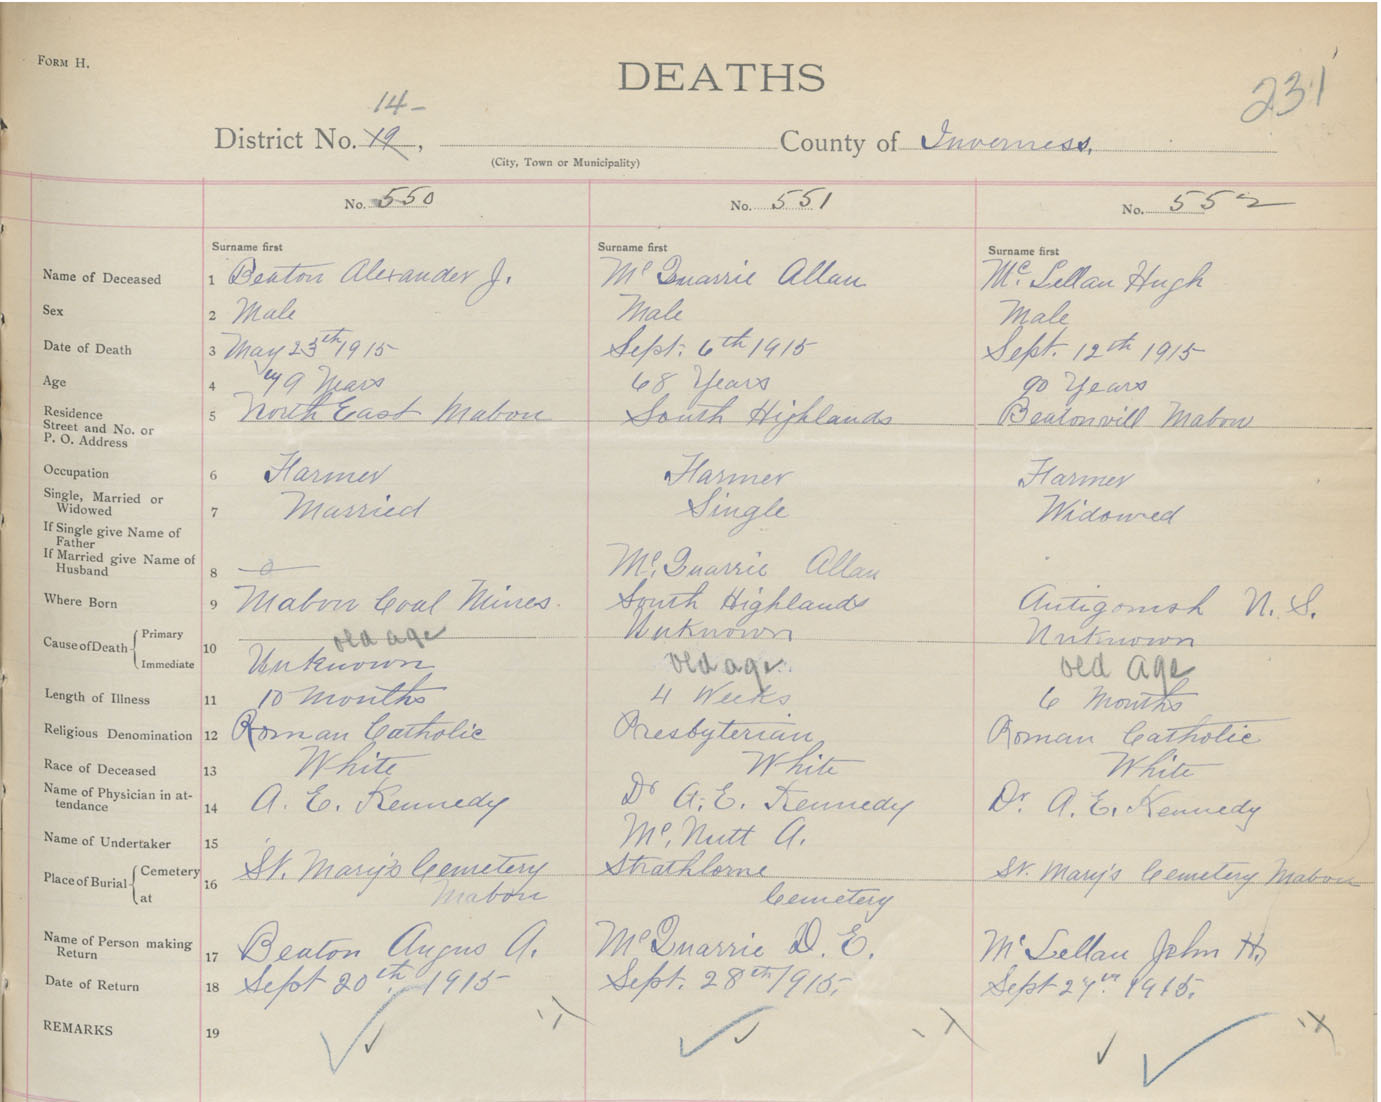 Form H.
DEATHS
231
14-
District No. 19, County of Inverness.
(City, Town or Municipality)
No. 550 No. 551 No. 552
Surname first Surname first Surname first
Name of Deceased 1 Beaton Alexander J. Mc Quarrie Allan Mc. Lellan Hugh
Sex 2 Male Male Male
Date of Death 3 May 23th 1915 Sept. 6th 1915 Sept. 12th 1915
Age 4 79 Years 68 Years 90 Years
Residence
Street and No. or
P. O. Address 5 North East Mabou South Highlands Beatonvill Mabou
Occupation 6 Farmer Farmer Farmer
Single, Married or
Widowed 7 Married Single Widowed
If Single give Name of
Father
If Married give Name of
Husband 8 Mc. Quarrie Allan
Where Born 9 Mabou Coal Mines. South Highlands Antigonish N. S.
Cause of Death Primary 10 old age Unknown Unknown
Immediate Unknown old age old Age
Length of Illness 11 10 months 4 Weeks 6 Months
Religious Denomination 12 Roman Catholic Presbyterian Roman Catholic
Race of Deceased 13 White White White
Name of Physician in at-
tendance 14 A. E. Kennedy Dr A. E. Kennedy Dr. A. E. Kennedy
Name of Undertaker 15 Mc. Nutt A.
Place of Burial Cemetery 16 St. Mary's Cemetery Strathlorne St. Mary's Cemetery Mabou
at Mabou Cemetery
Name of Person making
Return 17 Beaton Angus A. Mc Quarrie D. E. Mc Lellan John H.
Date of Return 18 Sept 20th. 1915 Sept. 28th 1915. Sept 27th. 1915.
REMARKS 19